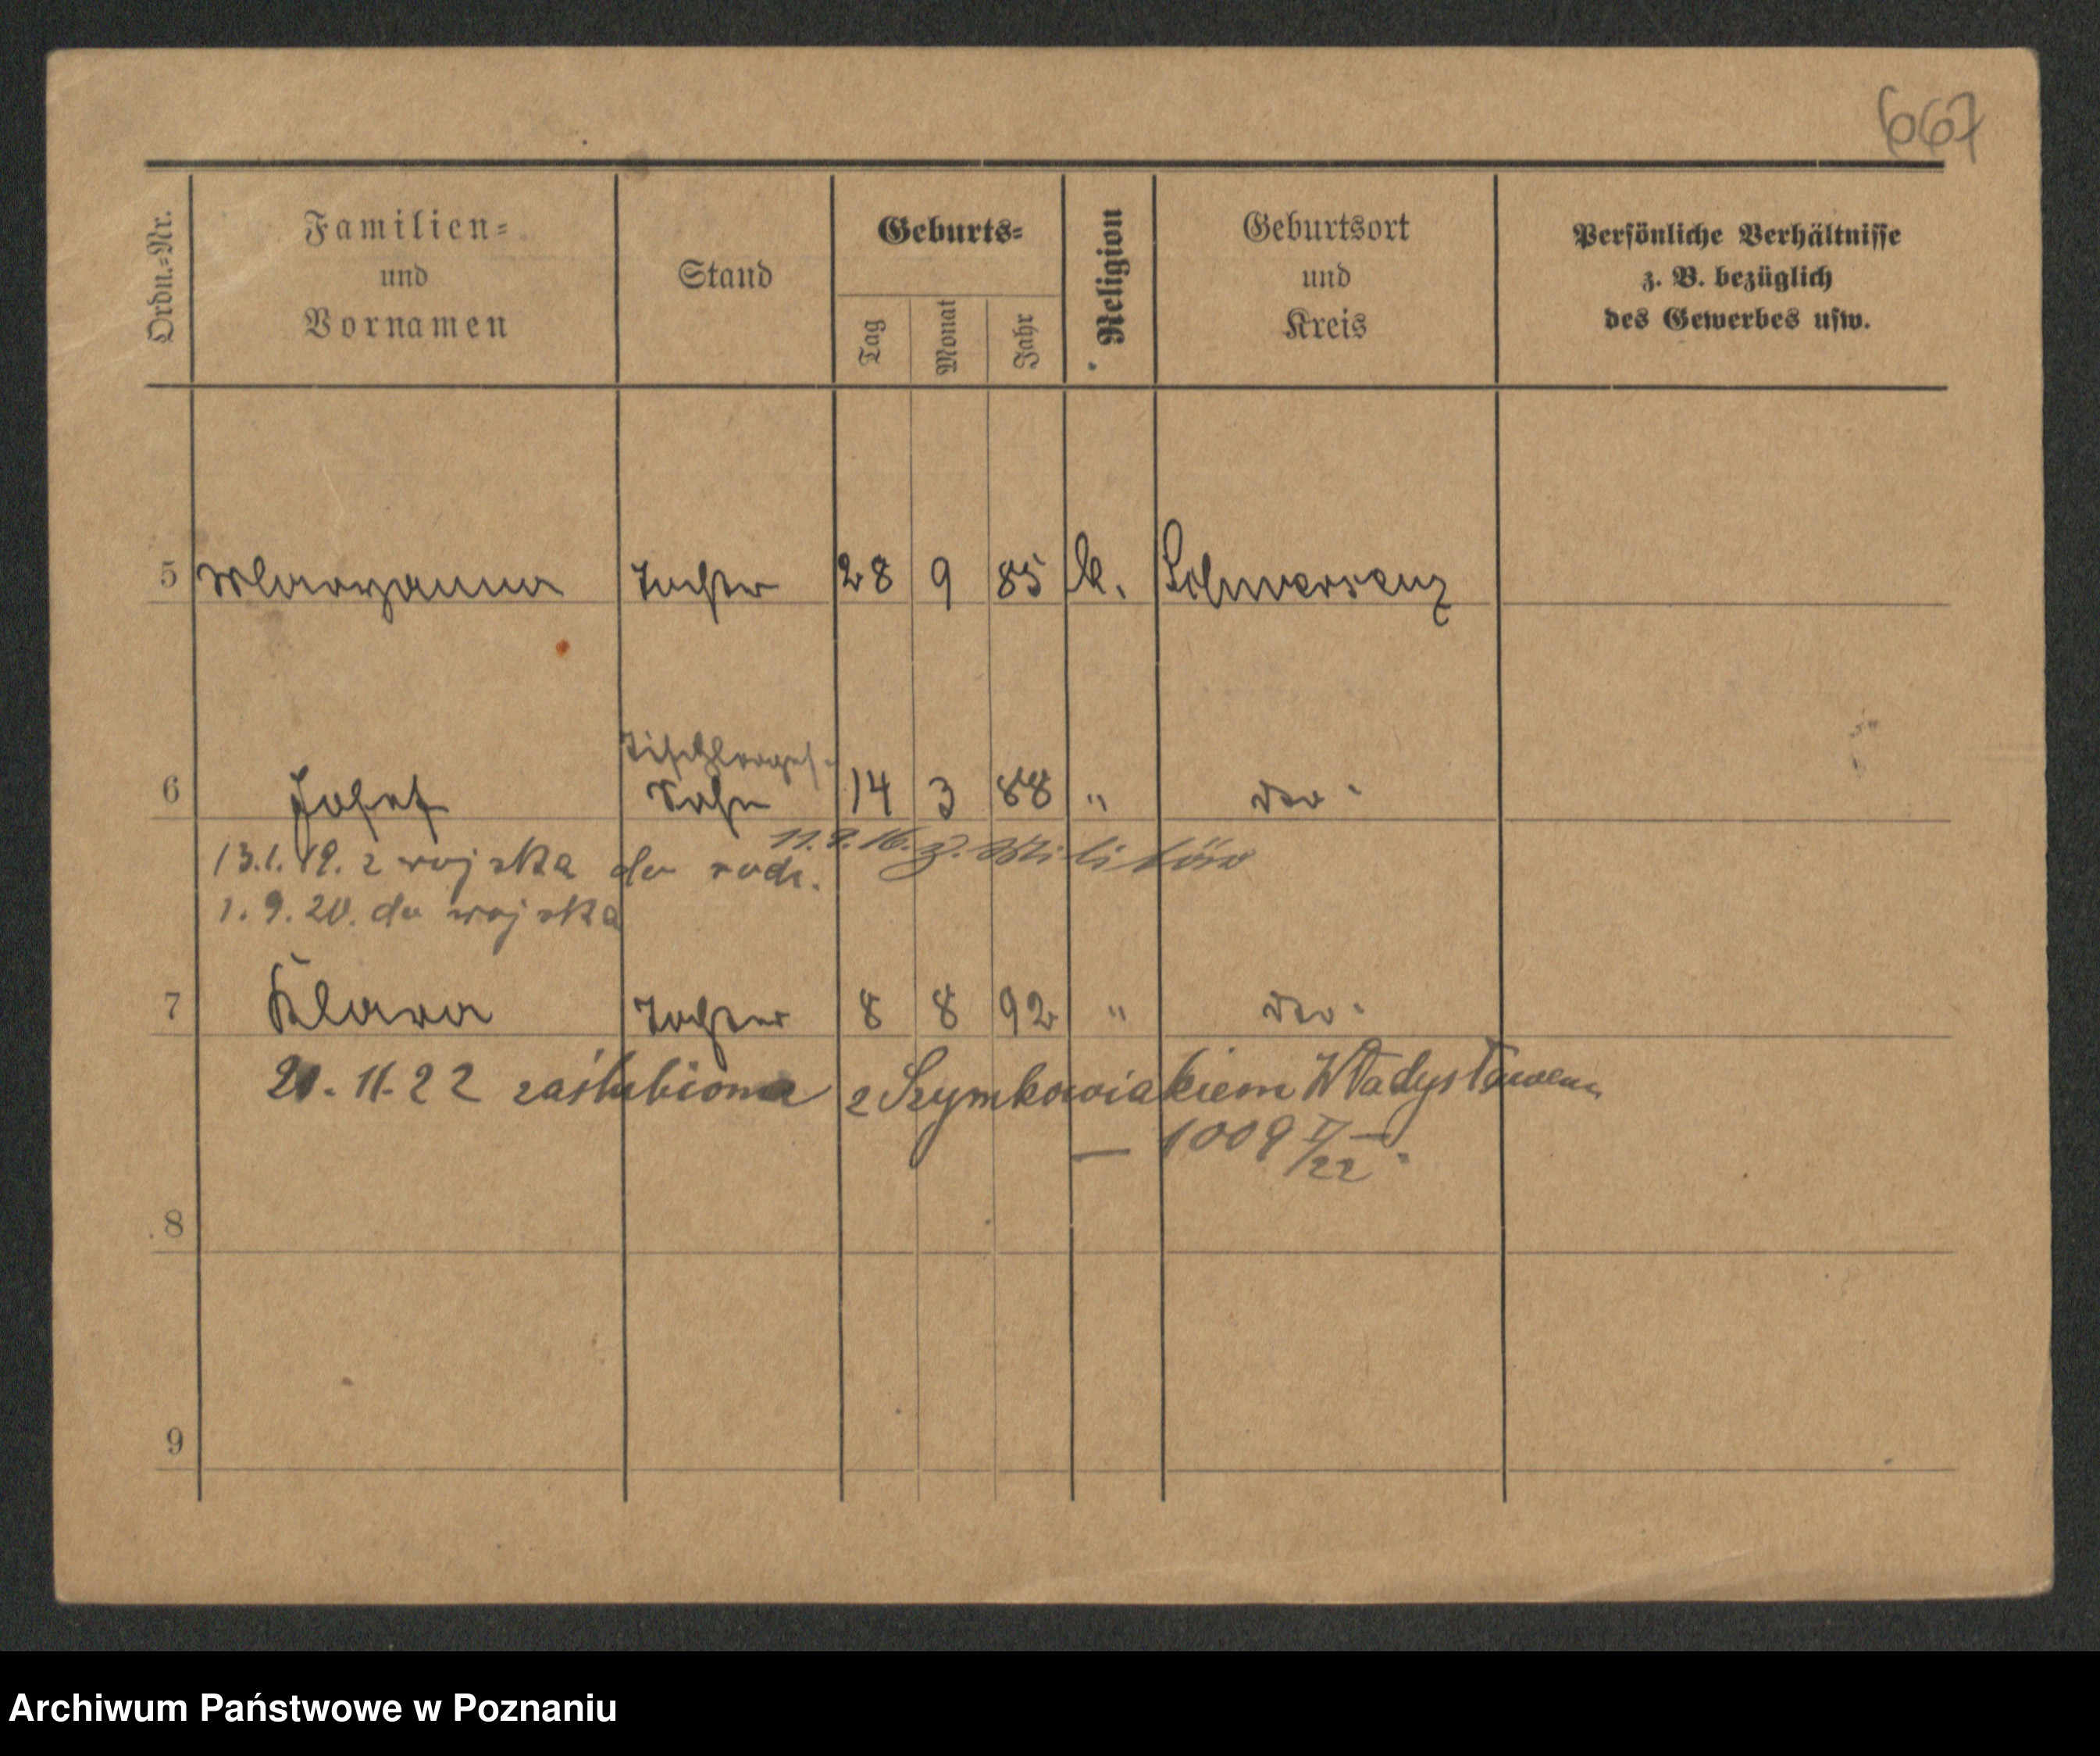 667
Ordn.-Nr.
Familien-
und
Vornamen
Stand
Geburts-
Tag
Monat
Jahr
Religion
Geburtsort
und
Kreis
Persönliche Verhältnisse
z. B. bezüglich
des Gewerbes usw.
5 Maryanna Tochter 28 9 85 k. Schwersenz
Tischlerges.
6 Josef Sohn 14 3 88 " dto.
11.9.16. z. Militär
13.1.19. z wojska do rodz.
1.9.20. do wojska
7 Klara Tochter 8 8 92 " dto.
20.11.22 zaślubiona z Szymkowiakiem Władysławem
— 1009 II/22 —.
8
9
Archiwum Państwowe w Poznaniu